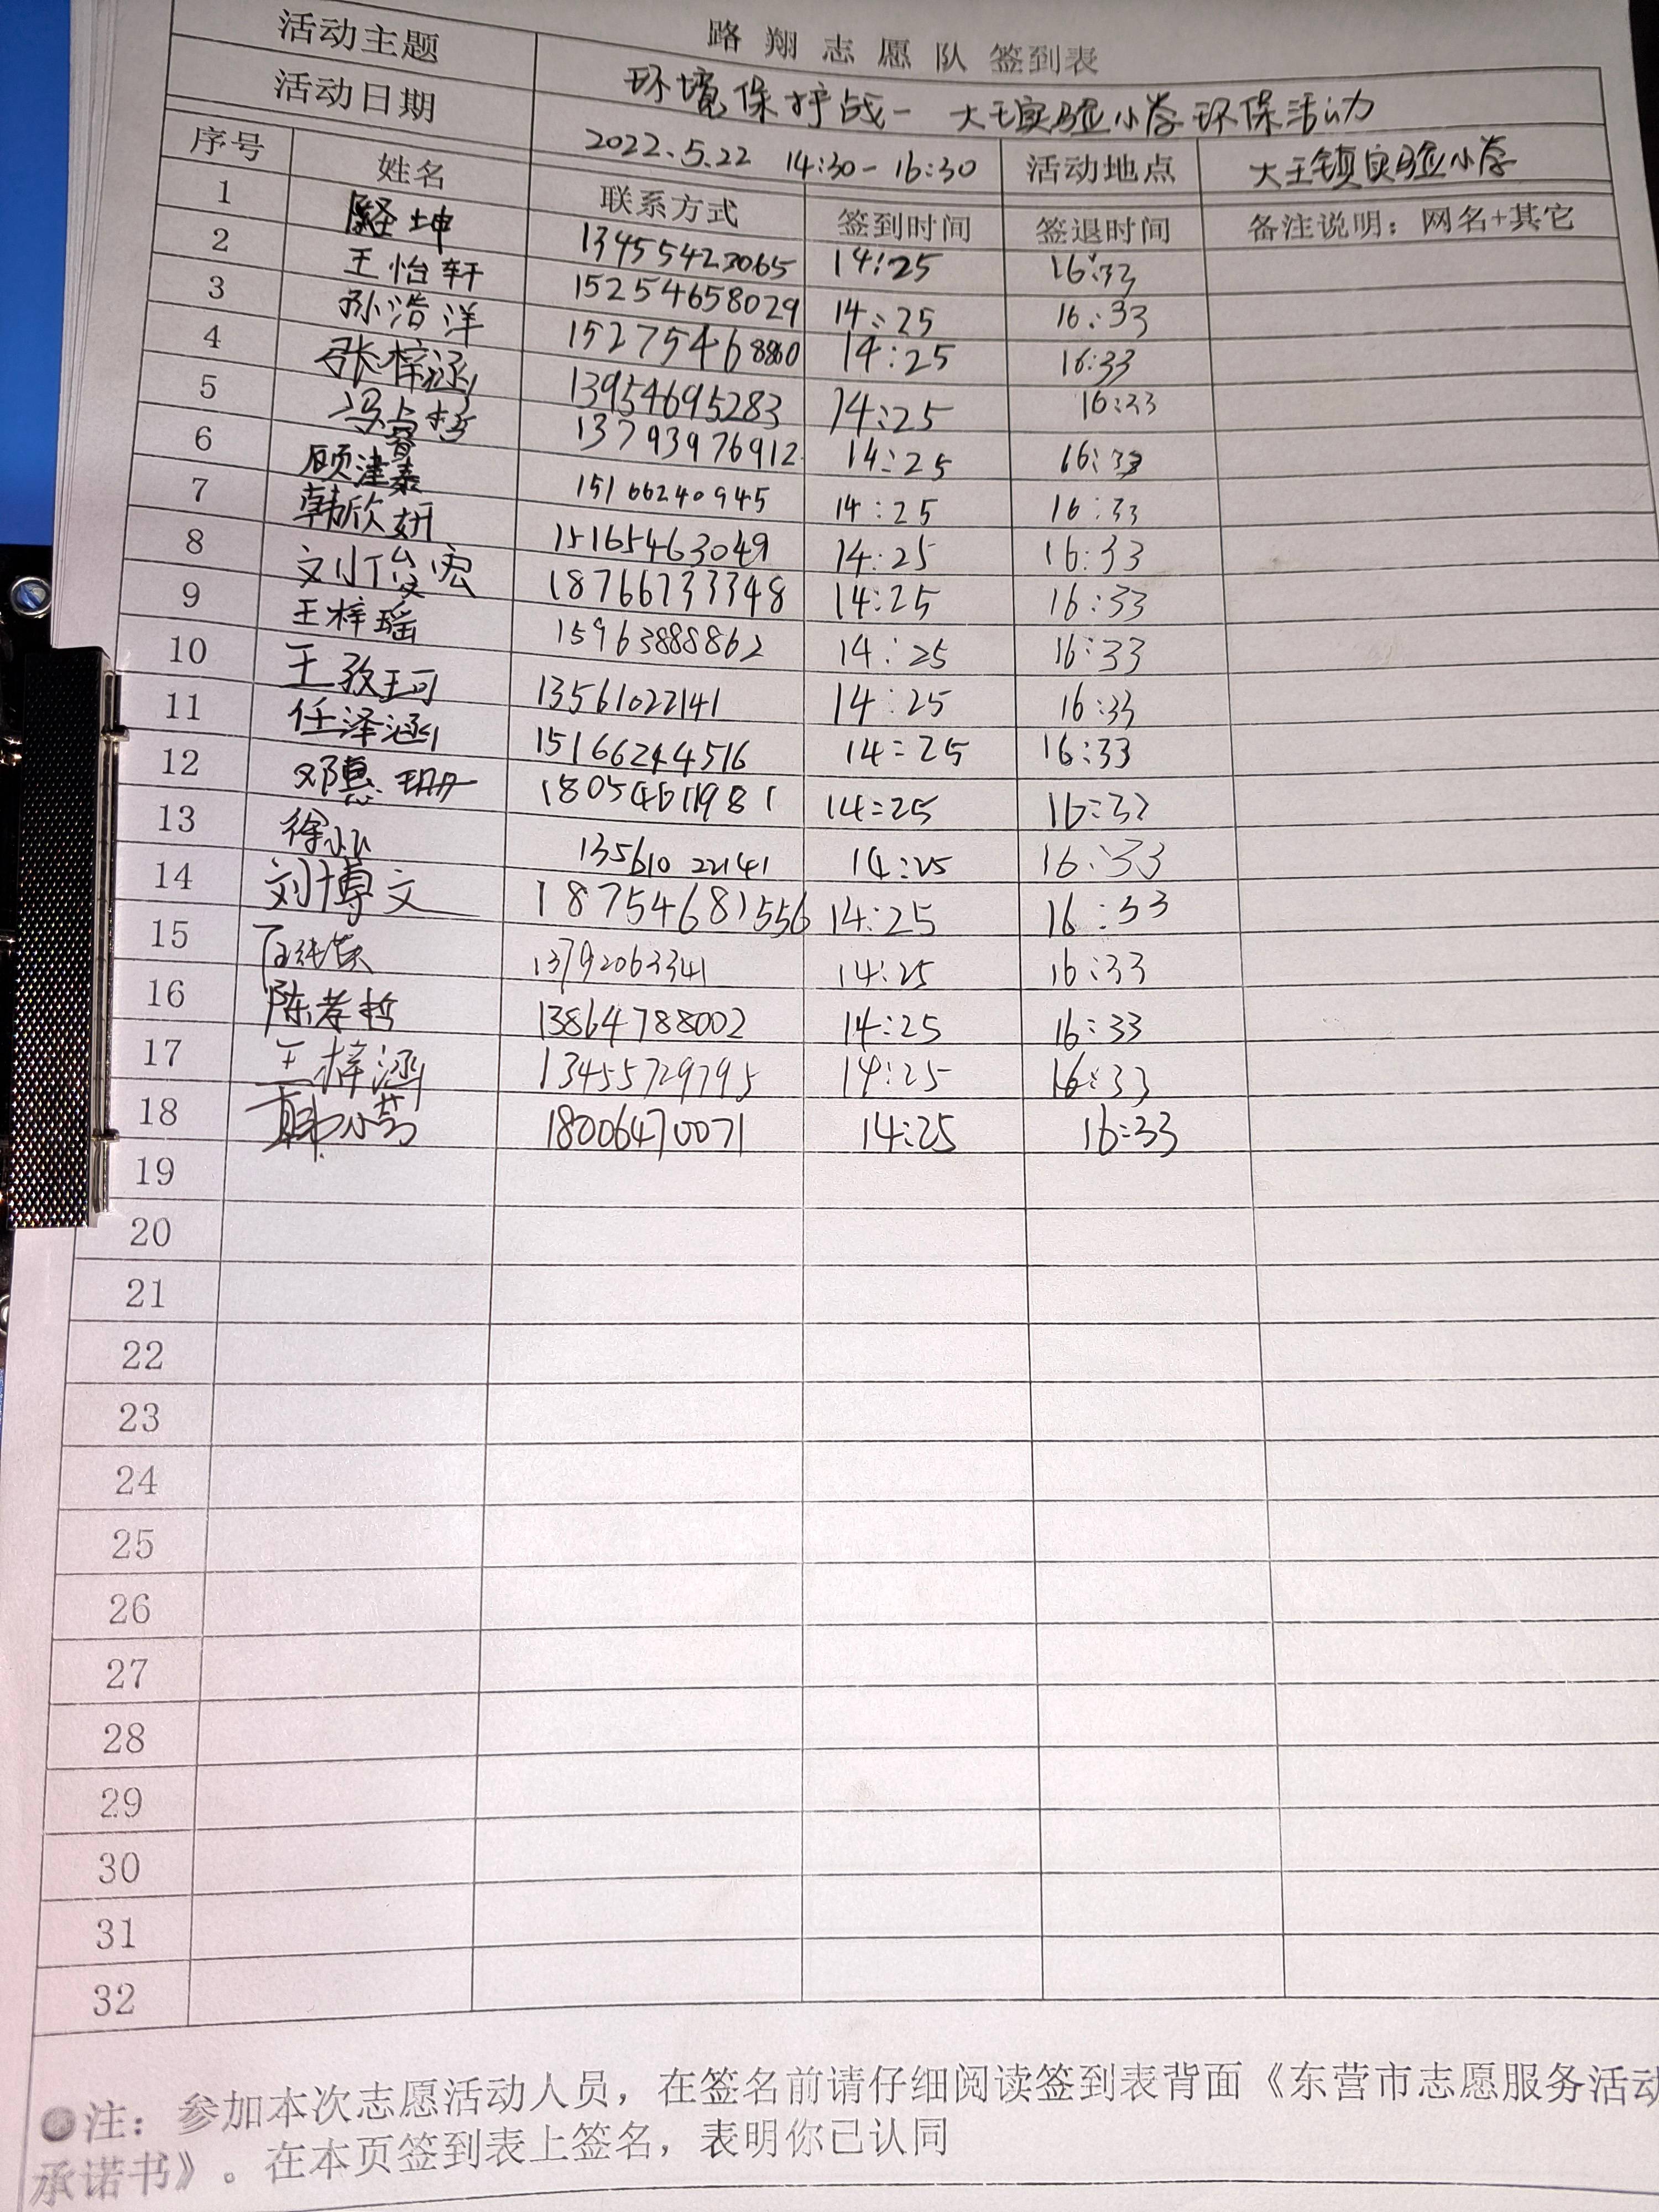 路翔志愿队签到表
活动主题 环境保护战一大王实验小学环保活动
活动日期 2022.5.22 14:30-16:30 活动地点 大王镇实验小学
序号 姓名 联系方式 签到时间 签退时间 备注说明：网名+其它
1 坤 13455423065 14:25 16:33
2 王怡轩 15254658029 14:25 16:33
3 孙浩洋 15275468860 14:25 16:33
4 张梓涵 13954695283 14:25 16:33
5 冯占哲 13793976912 14:25 16:33
6 顾津泰 15166240945 14:25 16:33
7 韩欣妍 15165463049 14:25 16:33
8 刘俊宏 18766733348 14:25 16:33
9 王梓瑶 15963888862 14:25 16:33
10 王孜珂 13561022141 14:25 16:33
11 任泽涵 15166244516 14:25 16:33
12 邓惠珊 18054611981 14:25 16:32
13 徐 13561022141 14:25 16:33
14 刘博文 18754681556 14:25 16:33
15 13792063341 14:25 16:33
16 陈孝哲 13864788002 14:25 16:33
17 王梓涵 13455729795 14:25 16:33
18 18006470071 14:25 16:33
19
20
21
22
23
24
25
26
27
28
29
30
31
32
注：参加本次志愿活动人员，在签名前请仔细阅读签到表背面《东营市志愿服务活动
承诺书》。在本页签到表上签名，表明你已认同